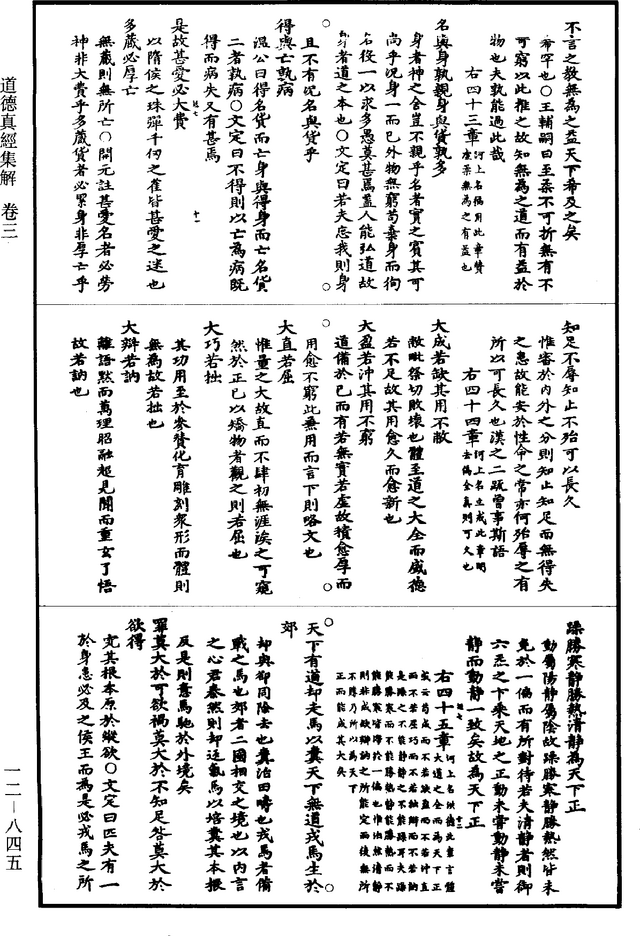 道德真經集解 卷三
不言之教無為之益天下希及之矣
希罕也〇王輔嗣曰至柔不可折無有不
可窮以此推之故知無為之道而有益於
物也夫孰能過此哉
右四十三章河上名徧用此章贊虛柔無為之有益也
名與身孰親身與貨孰多
身者神之舍豈不親乎名者實之賓其可
尚乎況身一而已外物無窮苟棄身而徇
名役一以求多愚莫甚焉蓋人能弘道故
身者道之本也〇文定曰若夫忘我則身
且不有況名與貨乎
得與亡孰病
溫公曰得名貨而亡身與得身而亡名貨
二者孰病〇文定曰不得則以亡為病既
得而病失又有甚焉
是故甚愛必大費
以隋侯之珠彈千仞之雀皆甚愛之迷也
多藏必厚亡
無藏則無所亡〇開元註甚愛名者必勞
神非大費乎多藏貨者必累身非厚亡乎
知足不辱知止不殆可以長久
惟審於內外之分則知止知足而無得失
之患故能安於性命之常亦何殆辱之有
所以可長久也漢之二疏曾事斯語
右四十四章河上名立戒此章明去偽全真則可久也
大成若缺其用不敝
敝毗祭切敗壞也體至道之大全而盛德
若不足故其用愈久而愈新也
大盈若沖其用不窮
道備於已而有若無實若虛故積愈厚而
用愈不窮此兼用而言下則略文也
大直若屈
惟量之大故直而不肆初無涯涘之可窺
然於正已以矯物者觀之則若屈也
大巧若拙
其功用至於參贊化育雕刻眾形而體則
無為故若拙也
大辯若訥
離語默而萬理昭融超見聞而重玄了悟
故若訥也
躁勝寒靜勝熱清靜為天下正
動屬陽靜屬陰故躁勝寒靜勝熱然皆未
免於一偏而有所對待若夫清靜者則御
六炁之卞乘天地之正動未嘗動靜未嘗
靜而動靜一致矣故為天下正
右四十五章河上名洪德此章言體大道之全而為天下正
天下有道却走馬以糞天下無道戎馬生於
郊
却與卻同除去也糞治田疇也戎馬者備
戰之馬也郊者二國相交之境也以內言
之心君泰然則却返氣馬以培糞其本根
反是則意馬馳於外境矣
罪莫大於可欲禍莫大於不知足咎莫大於
欲得
究其根本原於縱欲〇文定曰匹夫有一
於身患必及之侯王而為是必戎馬之所
一二—八四五